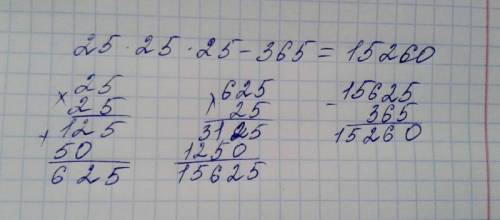 25 · 25 · 25 - 365 = 15260
× 25
25
+ 125
50
625
× 625
25
3125
1250
15625
- 15625
365
15260